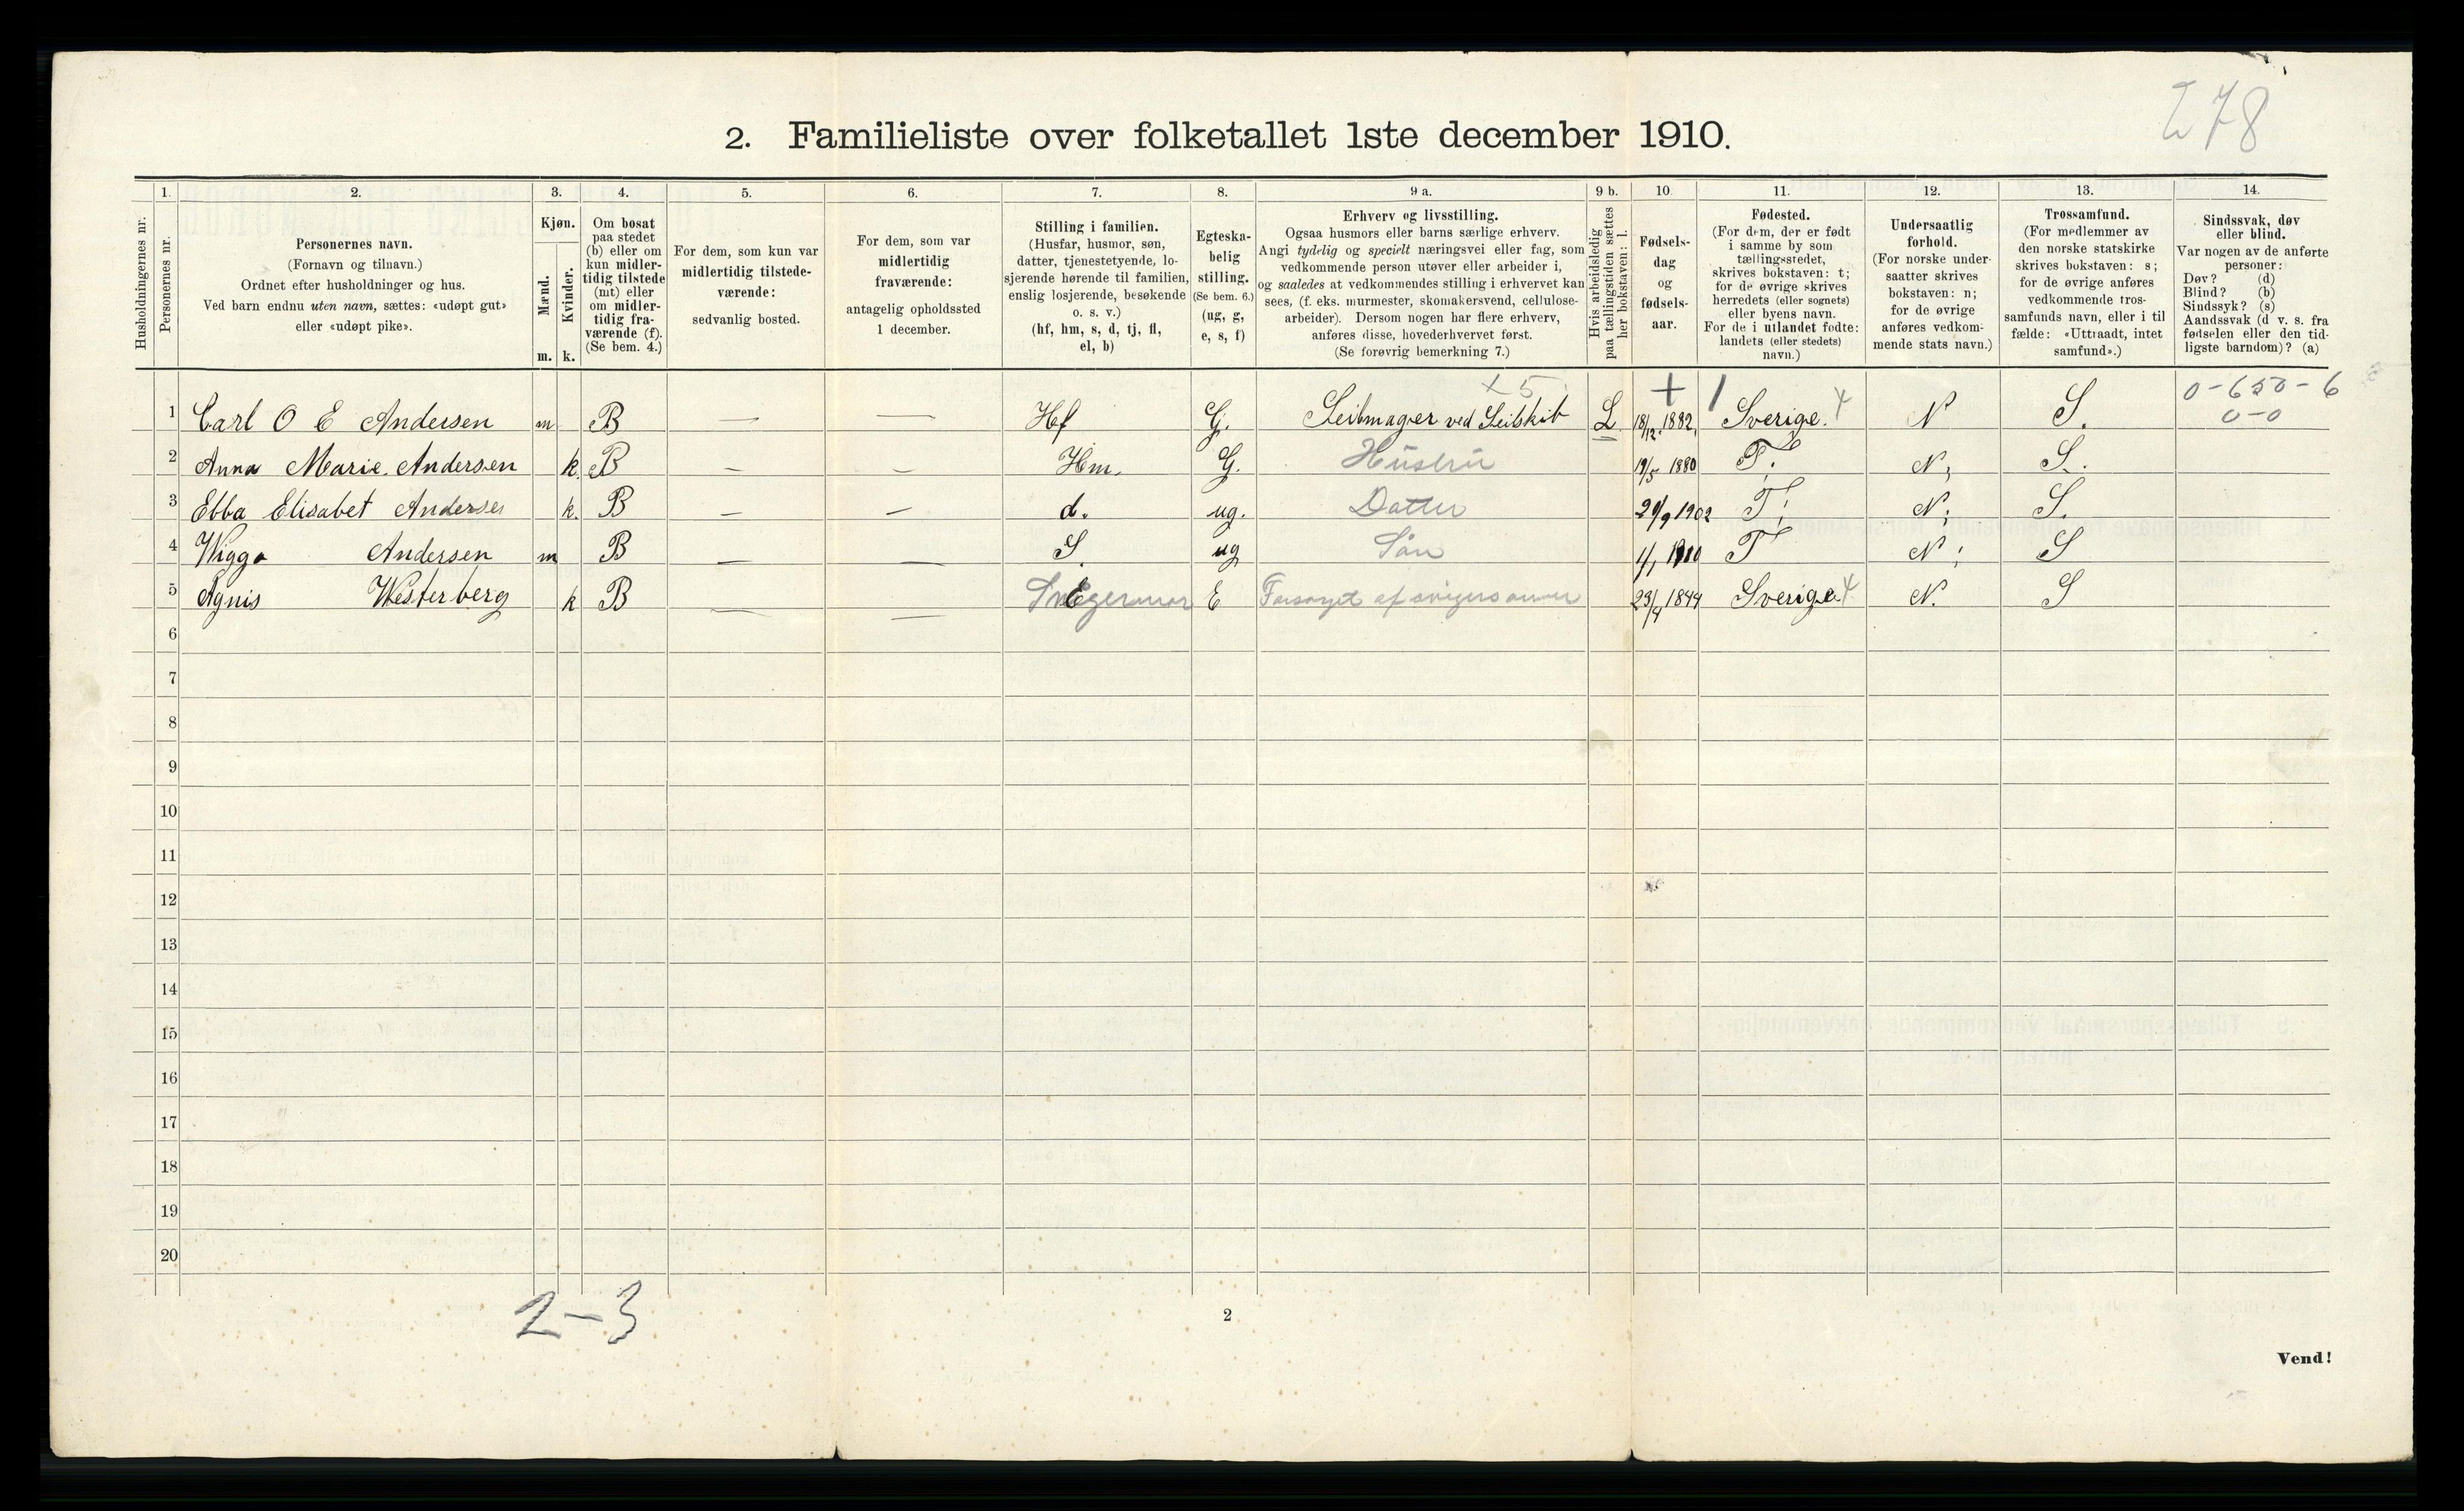 278
2. Familieliste over folketallet 1ste december 1910.
1. 2. 3. 4. 5. 6. 7. 8. 9 a. 9 b. 10. 11. 12. 13. 14.
Husholdningernes nr.
Personernes nr.
Personernes navn.
(Fornavn og tilnavn.)
Ordnet efter husholdninger og hus.
Ved barn endnu uten navn, sættes: «udøpt gut»
eller «udøpt pike».
Kjøn.
Mænd.
Kvinder.
m. k.
Om bosat
paa stedet
(b) eller om
kun midler-
tidig tilstede
(mt) eller
om midler-
tidig fra-
værende (f).
(Se bem. 4.)
For dem, som kun var
midlertidig tilstede-
værende:
sedvanlig bosted.
For dem, som var
midlertidig
fraværende:
antagelig opholdssted
1 december.
Stilling i familien.
(Husfar, husmor, søn,
datter, tjenestetyende, lo-
sjerende hørende til familien,
enslig losjerende, besøkende
o. s. v.)
(hf, hm, s, d, tj, fl,
el, b)
Egteska-
belig
stilling.
(Se bem. 6.)
(ug, g,
e, s, f)
Erhverv og livsstilling.
Ogsaa husmors eller barns særlige erhverv.
Angi tydelig og specielt næringsvei eller fag, som
vedkommende person utøver eller arbeider i,
og saaledes at vedkommendes stilling i erhvervet kan
sees, (f. eks. murmester, skomakersvend, cellulose-
arbeider). Dersom nogen har flere erhverv,
anføres disse, hovederhvervet først.
(Se forøvrig bemerkning 7.)
Hvis arbeidsledig
paa tællingstiden sættes
her bokstaven: l.
Fødsels-
dag
og
fødsels-
aar.
Fødested.
(For dem, der er født
i samme by som
tællingsstedet,
skrives bokstaven: t;
for de øvrige skrives
herredets (eller sognets)
eller byens navn.
For de i utlandet fødte:
landets (eller stedets)
navn.)
Undersaatlig
forhold.
(For norske under-
saatter skrives
bokstaven: n;
for de øvrige
anføres vedkom-
mende stats navn.)
Trossamfund.
(For medlemmer av
den norske statskirke
skrives bokstaven: s;
for de øvrige anføres
vedkommende tros-
samfunds navn, eller i til
fælde: «Uttraadt, intet
samfund».)
Sindssvak, døv
eller blind.
Var nogen av de anførte
personer:
Døv? (d)
Blind? (b)
Sindssyk? (s)
Aandssvak (d v. s. fra
fødselen eller den tid-
ligste barndom)? (a)
x 5 + / 0-650-6
0-0
1 Carl O E Andersen m B — — Hf G. Seilmager ved Seilskib L 18/12. 1882. Sverige. 4 N S.
2 Anna Marie. Andersen k. B — — Hm. G. Hustru 19/5 1880 T. N; S.
3 Ebba Elisabet Andersen k. B — — d. ug. Datter 29/9 1902 T; N; S.
4 Wiggo Andersen m B — — S. ug Sön 1/1 1910 T N; S
5 Agnis Westerberg k B — — Svegermor E Forsörget af svigersønnen 23/4 1844 Sverige. 4 N. S
6
7
8
9
10
11
12
13
14
15
16
17
18
19
20
2-3
2
Vend!